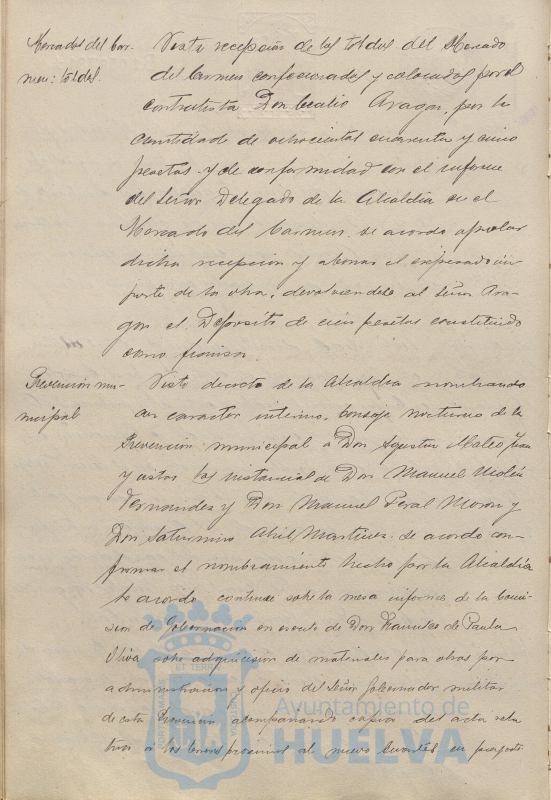 Mercados del Car-
men: toldos.
Vista recepción de los toldos del Mercado
del Carmen confeccionados y colocados por el
contratista Don Cecilio Aragon, por la
cantidad de ochocientas cuarenta y cinco
pesetas y de conformidad con el informe
del Señor Delegado de la Alcaldía en el
Mercado del Carmen se acordo aprobar
dicha recepcion y abonar el expresado im-
porte de la obra, devolviendose al Señor Ara-
gon el Deposito de cien pesetas constituido
como fianza.
Prevención mu-
nicipal
Visto decreto de la Alcaldia nombrando
con caracter interino, Conserje nocturno de la
Prevencion municipal a Don Agustin Mateo Juan
y vistas las instancias de Don Manuel
Fernandez y Don Manuel Peral Moron y
Don Saturnino Abril Martinez se acordo con-
firmar el nombramiento hecho por la Alcaldía
Se acordo continue sobre la mesa informes de la Comi-
sion de Gobernacion en escrito de Don Francisco de Paula
Oliva sobre adquisicion de materiales para obras por
administracion y oficio del Señor Gobernador militar
de esta Provincia acompañando copia del acta rela-
tiva a los proximos al nuevo Cuartel en
ET TERRAE
PORTUS MARIS
CUSTODIA
Ayuntamiento de
HUELVA